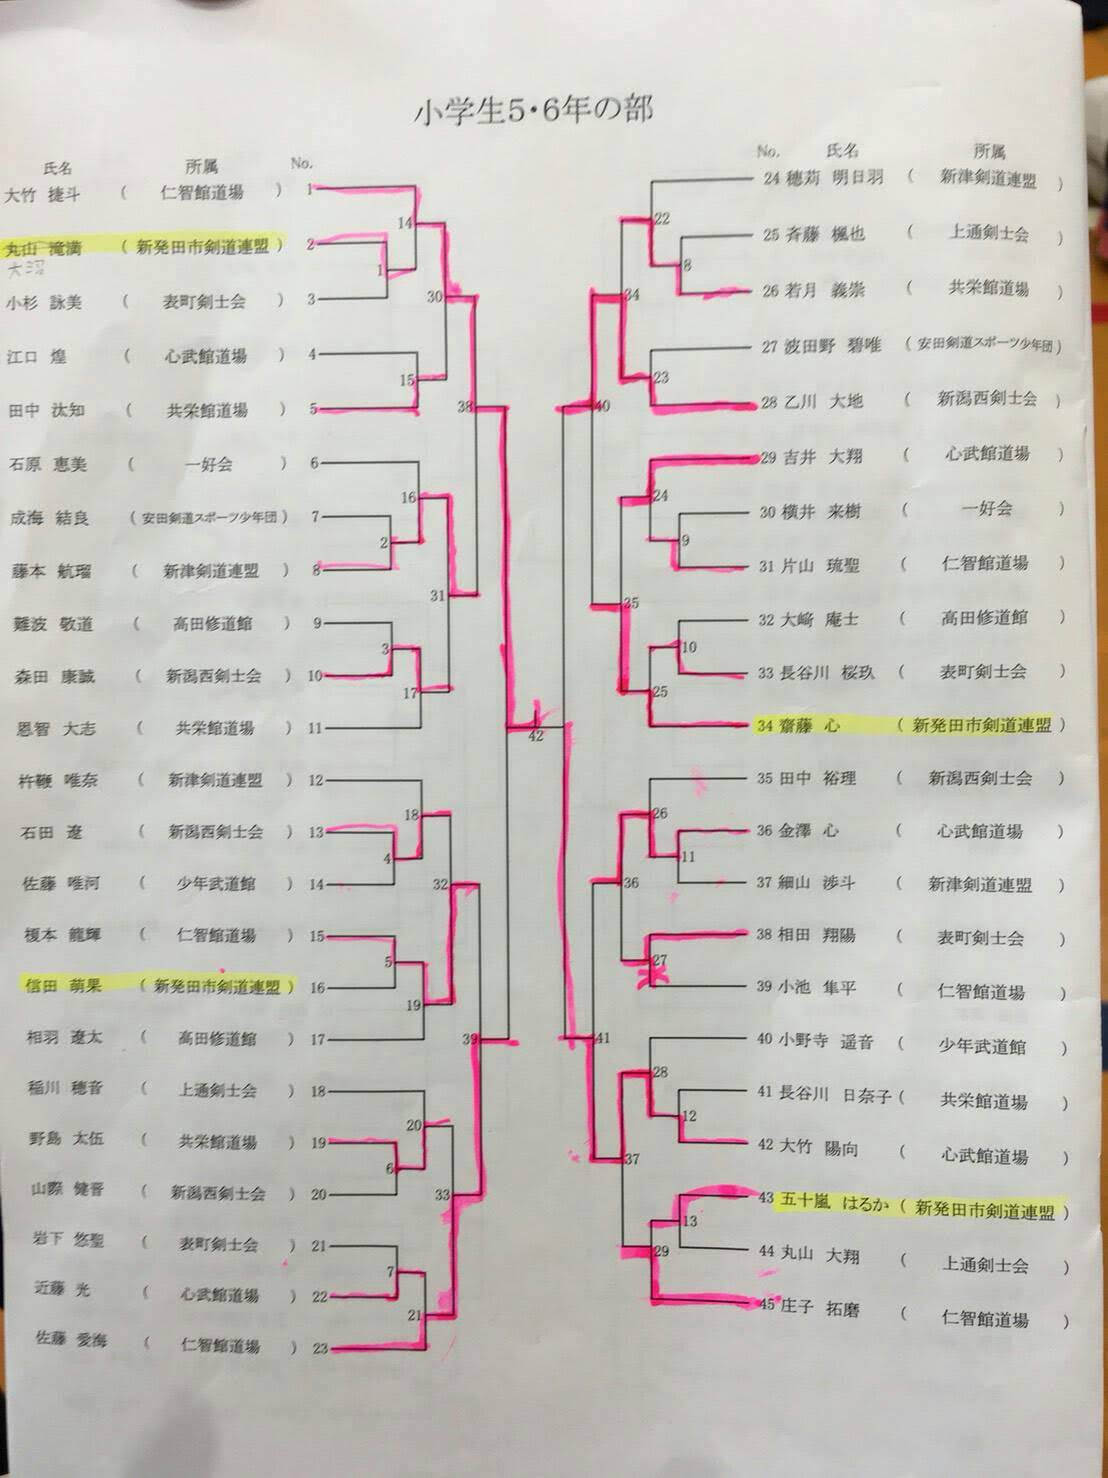 小学生5・6年の部
氏名 所属 No.
大竹 捷斗 ( 仁智館道場 ) 1
丸山 滝満 ( 新発田市剣道連盟 ) 2
大沼
小杉 詠美 ( 表町剣士会 ) 3
江口 煌 ( 心武館道場 ) 4
田中 汰知 ( 共栄館道場 ) 5
石原 恵美 ( 一好会 ) 6
成海 結良 ( 安田剣道スポーツ少年団 ) 7
藤本 航瑠 ( 新津剣道連盟 ) 8
難波 敬道 ( 高田修道館 ) 9
森田 康誠 ( 新潟西剣士会 ) 10
恩智 大志 ( 共栄館道場 ) 11
杵鞭 唯奈 ( 新津剣道連盟 ) 12
石田 遼 ( 新潟西剣士会 ) 13
佐藤 唯河 ( 少年武道館 ) 14
榎本 龍輝 ( 仁智館道場 ) 15
信田 萌果 ( 新発田市剣道連盟 ) 16
相羽 遼太 ( 高田修道館 ) 17
稲川 穂音 ( 上通剣士会 ) 18
野島 太伍 ( 共栄館道場 ) 19
山際 健晋 ( 新潟西剣士会 ) 20
岩下 悠聖 ( 表町剣士会 ) 21
近藤 光 ( 心武館道場 ) 22
佐藤 愛海 ( 仁智館道場 ) 23
14
1
30
15
38
16
2
31
3
17
18
4
32
5
19
39
20
6
33
7
21
42
No. 氏名 所属
24 穂苅 明日羽 ( 新津剣道連盟 )
25 斉藤 楓也 ( 上通剣士会 )
26 若月 義崇 ( 共栄館道場 )
27 波田野 碧唯 ( 安田剣道スポーツ少年団 )
28 乙川 大地 ( 新潟西剣士会 )
29 吉井 大翔 ( 心武館道場 )
30 横井 来樹 ( 一好会 )
31 片山 琉聖 ( 仁智館道場 )
32 大﨑 庵士 ( 高田修道館 )
33 長谷川 桜玖 ( 表町剣士会 )
34 齋藤 心 ( 新発田市剣道連盟 )
35 田中 裕理 ( 新潟西剣士会 )
36 金澤 心 ( 心武館道場 )
37 細山 渉斗 ( 新津剣道連盟 )
38 相田 翔陽 ( 表町剣士会 )
39 小池 隼平 ( 仁智館道場 )
40 小野寺 遥音 ( 少年武道館 )
41 長谷川 日奈子 ( 共栄館道場 )
42 大竹 陽向 ( 心武館道場 )
43 五十嵐 はるか ( 新発田市剣道連盟 )
44 丸山 大翔 ( 上通剣士会 )
45 庄子 拓磨 ( 仁智館道場 )
22
8
34
23
40
24
9
35
10
25
26
11
36
27
41
28
12
37
13
29